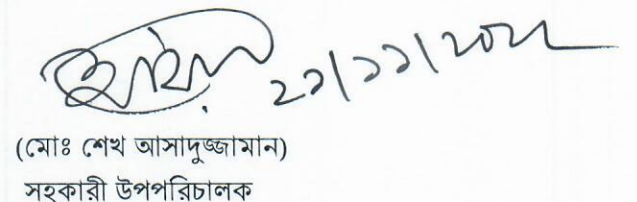 ২১/১১/২০২২
(মোঃ শেখ আসাদুজ্জামান)
সহকারী উপপরিচালক